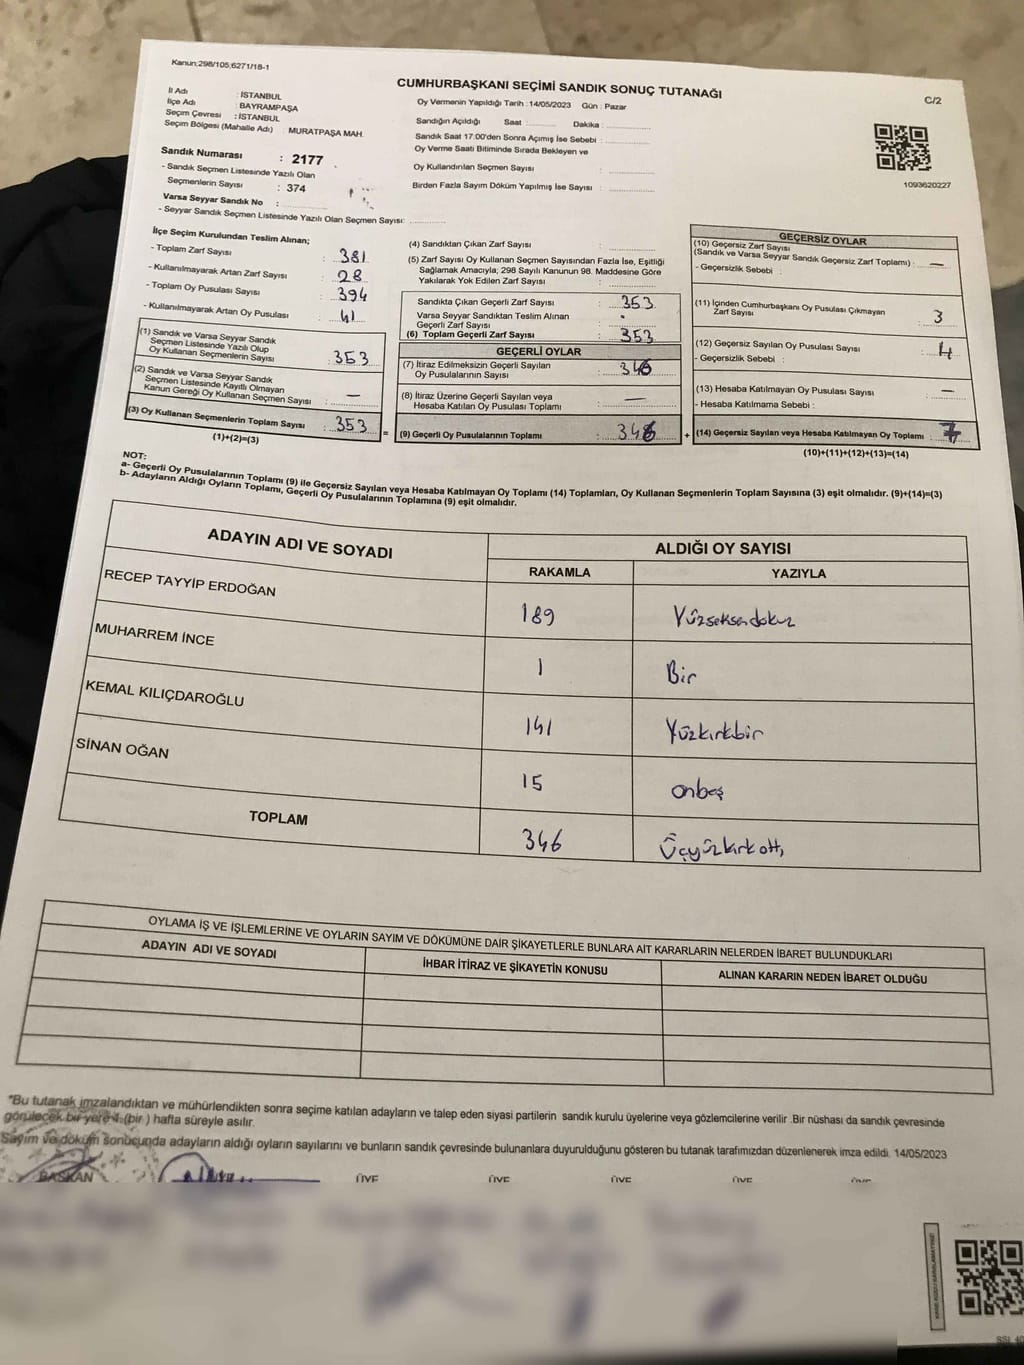 Kanun;298/105,6271/18-1
CUMHURBAŞKANI SEÇİMİ SANDIK SONUÇ TUTANAĞI
C/2
İl Adı : İSTANBUL
İlçe Adı : BAYRAMPAŞA
Seçim Çevresi : İSTANBUL
Seçim Bölgesi (Mahalle Adı) : MURATPAŞA MAH.
Oy Vermenin Yapıldığı Tarih : 14/05/2023 Gün : Pazar
Sandığın Açıldığı Saat : Dakika :
Sandık Saat 17:00'den Sonra Açımış İse Sebebi :
Oy Verme Saati Bitiminde Sırada Bekleyen ve
Oy Kullandırılan Seçmen Sayısı :
Birden Fazla Sayım Döküm Yapılmış İse Sayısı :
1093620227
Sandık Numarası : 2177
- Sandık Seçmen Listesinde Yazılı Olan
Seçmenlerin Sayısı : 374
Varsa Seyyar Sandık No :
- Seyyar Sandık Seçmen Listesinde Yazılı Olan Seçmen Sayısı:
İlçe Seçim Kurulundan Teslim Alınan;
- Toplam Zarf Sayısı : 381
- Kullanılmayarak Artan Zarf Sayısı : 28
- Toplam Oy Pusulası Sayısı : 394
- Kullanılmayarak Artan Oy Pusulası : 41
(1) Sandık ve Varsa Seyyar Sandık
Seçmen Listesinde Yazılı Olup
Oy Kullanan Seçmenlerin Sayısı : 353
(2) Sandık ve Varsa Seyyar Sandık
Seçmen Listesinde Kayıtlı Olmayan
Kanun Gereği Oy Kullanan Seçmen Sayısı : —
(3) Oy Kullanan Seçmenlerin Toplam Sayısı : 353
(1)+(2)=(3)
=
(4) Sandıktan Çıkan Zarf Sayısı :
(5) Zarf Sayısı Oy Kullanan Seçmen Sayısından Fazla İse, Eşitliği
Sağlamak Amacıyla; 298 Sayılı Kanunun 98. Maddesine Göre
Yakılarak Yok Edilen Zarf Sayısı :
Sandıkta Çıkan Geçerli Zarf Sayısı : 353
Varsa Seyyar Sandıktan Teslim Alınan
Geçerli Zarf Sayısı :
(6) Toplam Geçerli Zarf Sayısı : 353
GEÇERLİ OYLAR
(7) İtiraz Edilmeksizin Geçerli Sayılan
Oy Pusulalarının Sayısı : 346
(8) İtiraz Üzerine Geçerli Sayılan veya
Hesaba Katılan Oy Pusulası Toplamı : —
(9) Geçerli Oy Pusulalarının Toplamı : 346
+
GEÇERSİZ OYLAR
(10) Geçersiz Zarf Sayısı
(Sandık ve Varsa Seyyar Sandık Geçersiz Zarf Toplamı) : —
- Geçersizlik Sebebi :
(11) İçinden Cumhurbaşkanı Oy Pusulası Çıkmayan
Zarf Sayısı : 3
(12) Geçersiz Sayılan Oy Pusulası Sayısı : 4
- Geçersizlik Sebebi :
(13) Hesaba Katılmayan Oy Pusulası Sayısı : —
- Hesaba Katılmama Sebebi :
(14) Geçersiz Sayılan veya Hesaba Katılmayan Oy Toplamı : 7
(10)+(11)+(12)+(13)=(14)
NOT:
a- Geçerli Oy Pusulalarının Toplamı (9) ile Geçersiz Sayılan veya Hesaba Katılmayan Oy Toplamı (14) Toplamları, Oy Kullanan Seçmenlerin Toplam Sayısına (3) eşit olmalıdır. (9)+(14)=(3)
b- Adayların Aldığı Oyların Toplamı, Geçerli Oy Pusulalarının Toplamına (9) eşit olmalıdır.
ADAYIN ADI VE SOYADI ALDIĞI OY SAYISI
RAKAMLA YAZIYLA
RECEP TAYYİP ERDOĞAN 189 Yüzseksendokuz
MUHARREM İNCE 1 Bir
KEMAL KILIÇDAROĞLU 141 Yüzkırkbir
SİNAN OĞAN 15 onbeş
TOPLAM 346 Üçyüzkırkaltı
OYLAMA İŞ VE İŞLEMLERİNE VE OYLARIN SAYIM VE DÖKÜMÜNE DAİR ŞİKAYETLERLE BUNLARA AİT KARARLARIN NELERDEN İBARET BULUNDUKLARI
ADAYIN ADI VE SOYADI İHBAR İTİRAZ VE ŞİKAYETİN KONUSU ALINAN KARARIN NEDEN İBARET OLDUĞU
"Bu tutanak imzalandıktan ve mühürlendikten sonra seçime katılan adayların ve talep eden siyasi partilerin sandık kurulu üyelerine veya gözlemcilerine verilir .Bir nüshası da sandık çevresinde
görülecek bir yere 1 (bir ) hafta süreyle asılır.
Sayım ve döküm sonucunda adayların aldığı oyların sayılarını ve bunların sandık çevresinde bulunanlara duyurulduğunu gösteren bu tutanak tarafımızdan düzenlenerek imza edildi. 14/05/2023
BAŞKAN ÜYE ÜYE ÜYE ÜYE